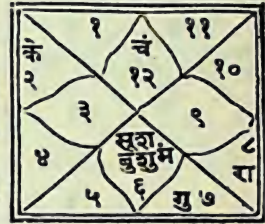 १ चं ११
कं
२ १२ १०
३ ९
४ सूश ८
बुशुमं रा
५ ६ गु ७